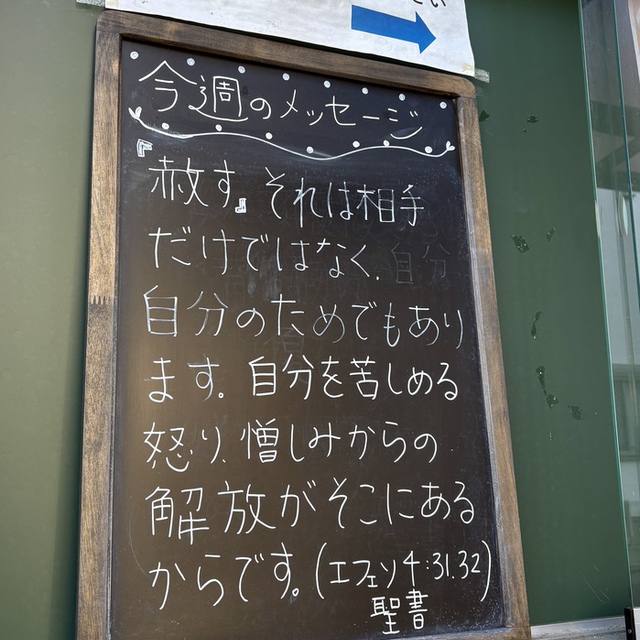 さい
今週のメッセージ
『赦す』それは相手
だけではなく、自分
自分のためでもあり
ます。自分を苦しめる
怒り、憎しみからの
解放がそこにある
からです。(エフェソ4:31.32)
聖書